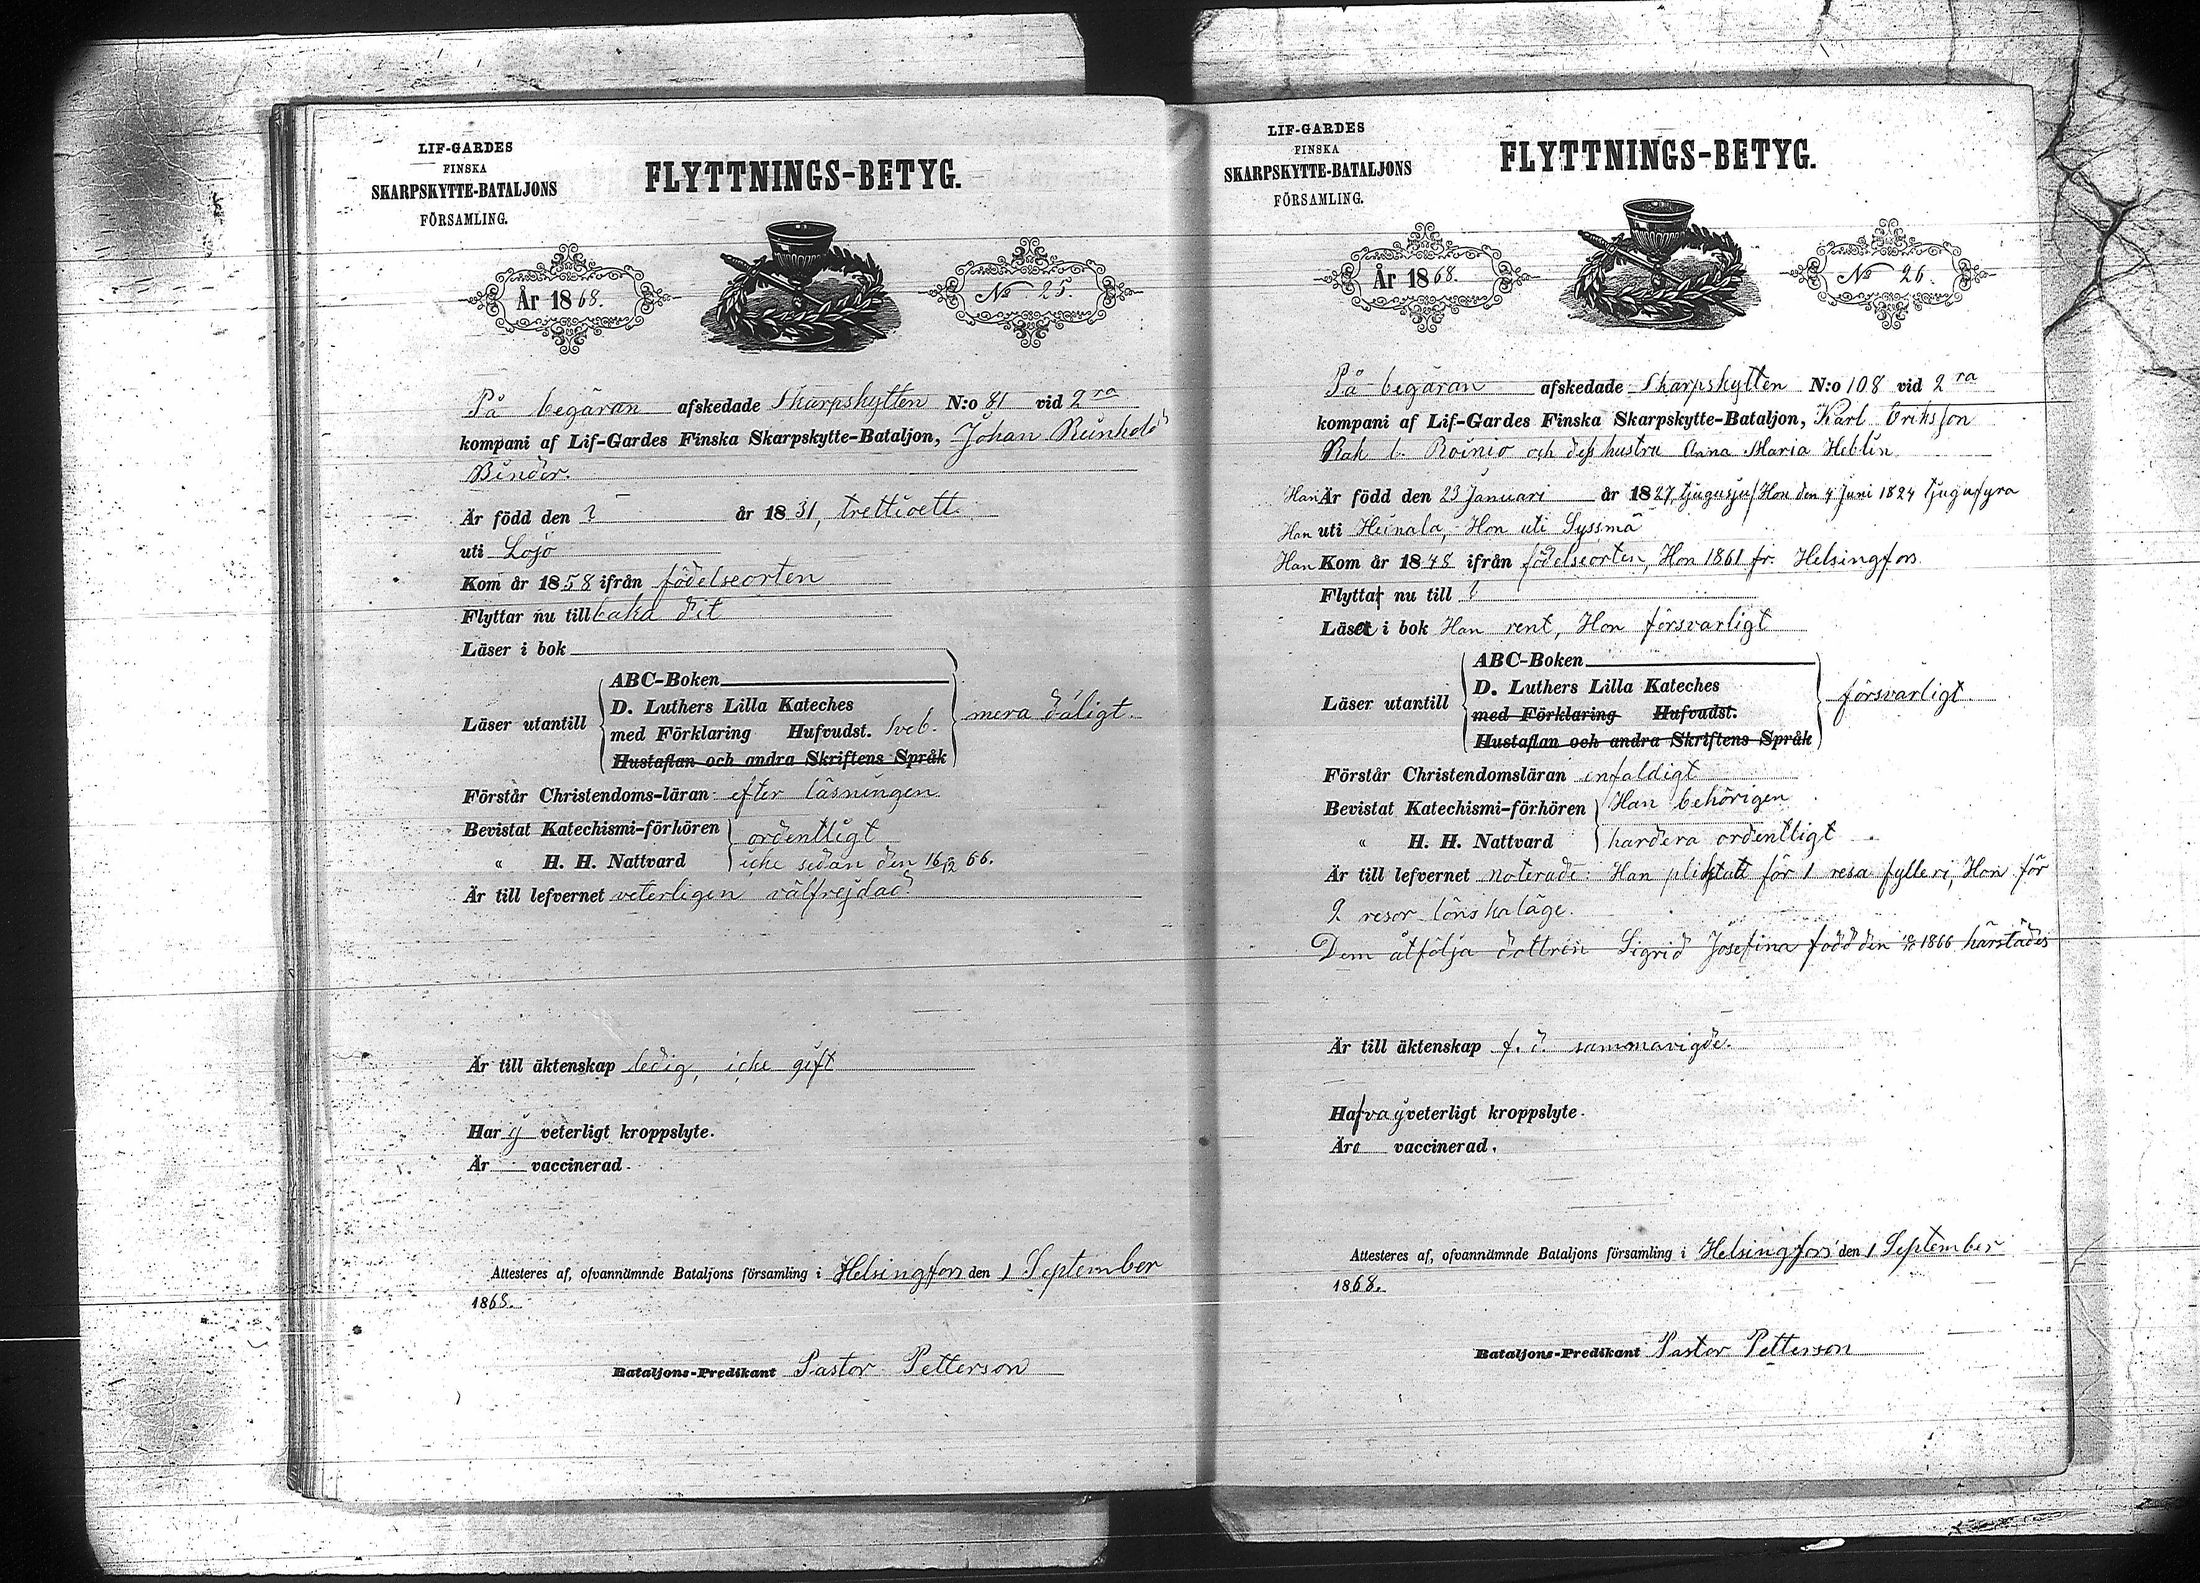 LIF-GARDES
FINSKA
SKARPSKYTTE-BATALJONS
FÖRSAMLING.
FLYTTNINGS-BETYG.
År 1868.
No 25.
På begäran afskedade Skarpskytten N:o 81 vid 2ra
kompani af Lif-Gardes Finska Skarpskytte-Bataljon, Johan Reinhold
Binder.
Är född den ? år 1831, trettioett.
uti Lojo
Kom år 1858 ifrån födelseorten
Flyttar nu till baka dit
Läser i bok
ABC-Boken
D. Luthers Lilla Kateches
Läser utantill med Förklaring Hufvudst. Sveb. mera dåligt.
Hustaflan och andra Skriftens Språk
Förstår Christendoms-läran efter läsningen
Bevistat Katechismi-förhören ordentligt
" H. H. Nattvard icke sedan den 16/12 66.
Är till lefvernet veterligen välfrejdad
Är till äktenskap ledig, icke gift
Har ej veterligt kroppslyte.
Är vaccinerad.
Attesteres af, ofvannämnde Bataljons församling i Helsingfors den 1 September
1868.
Bataljons-Predikant Pastor Petterson
LIF-GARDES
FINSKA
SKARPSKYTTE-BATALJONS
FÖRSAMLING.
FLYTTNINGS-BETYG.
År 1868.
No 26.
På begäran afskedade Skarpskytten N:o 108 vid 2ra
kompani af Lif-Gardes Finska Skarpskytte-Bataljon, Karl Eriksson
Rah l. Roinio och dess hustru Anna Maria Heblin
Han Är född den 23 Januari år 1827, tjugusju/Hon den 4 Juni 1824 tjugufyra
Han uti Heinola, Hon uti Syssmä
Han Kom år 1848 ifrån födelseorten, Hon 1861 fr. Helsingfors
Flytta nu till ?
Läsa i bok Han rent, Hon försvarligt
ABC-Boken
D. Luthers Lilla Kateches
Läser utantill med Förklaring Hufvudst. försvarligt.
Hustaflan och andra Skriftens Språk
Förstår Christendomsläran enfaldigt
Bevistat Katechismi-förhören Han behörigen
" H. H. Nattvard hardera ordentligt
Är till lefvernet noterade: Han pliktatt för 1 resa fylleri, Hon för
2 resor lönskaläge.
Dem åtfölja dottren Sigrid Josefina född den 1866 härstädes
Är till äktenskap f. d. sammanvigde.
Hafva ej veterligt kroppslyte.
Äro vaccinerad.
Attesteres af, ofvannämnde Bataljons församling i Helsingfors den 1 September
1868.
Bataljons-Predikant Pastor Petterson